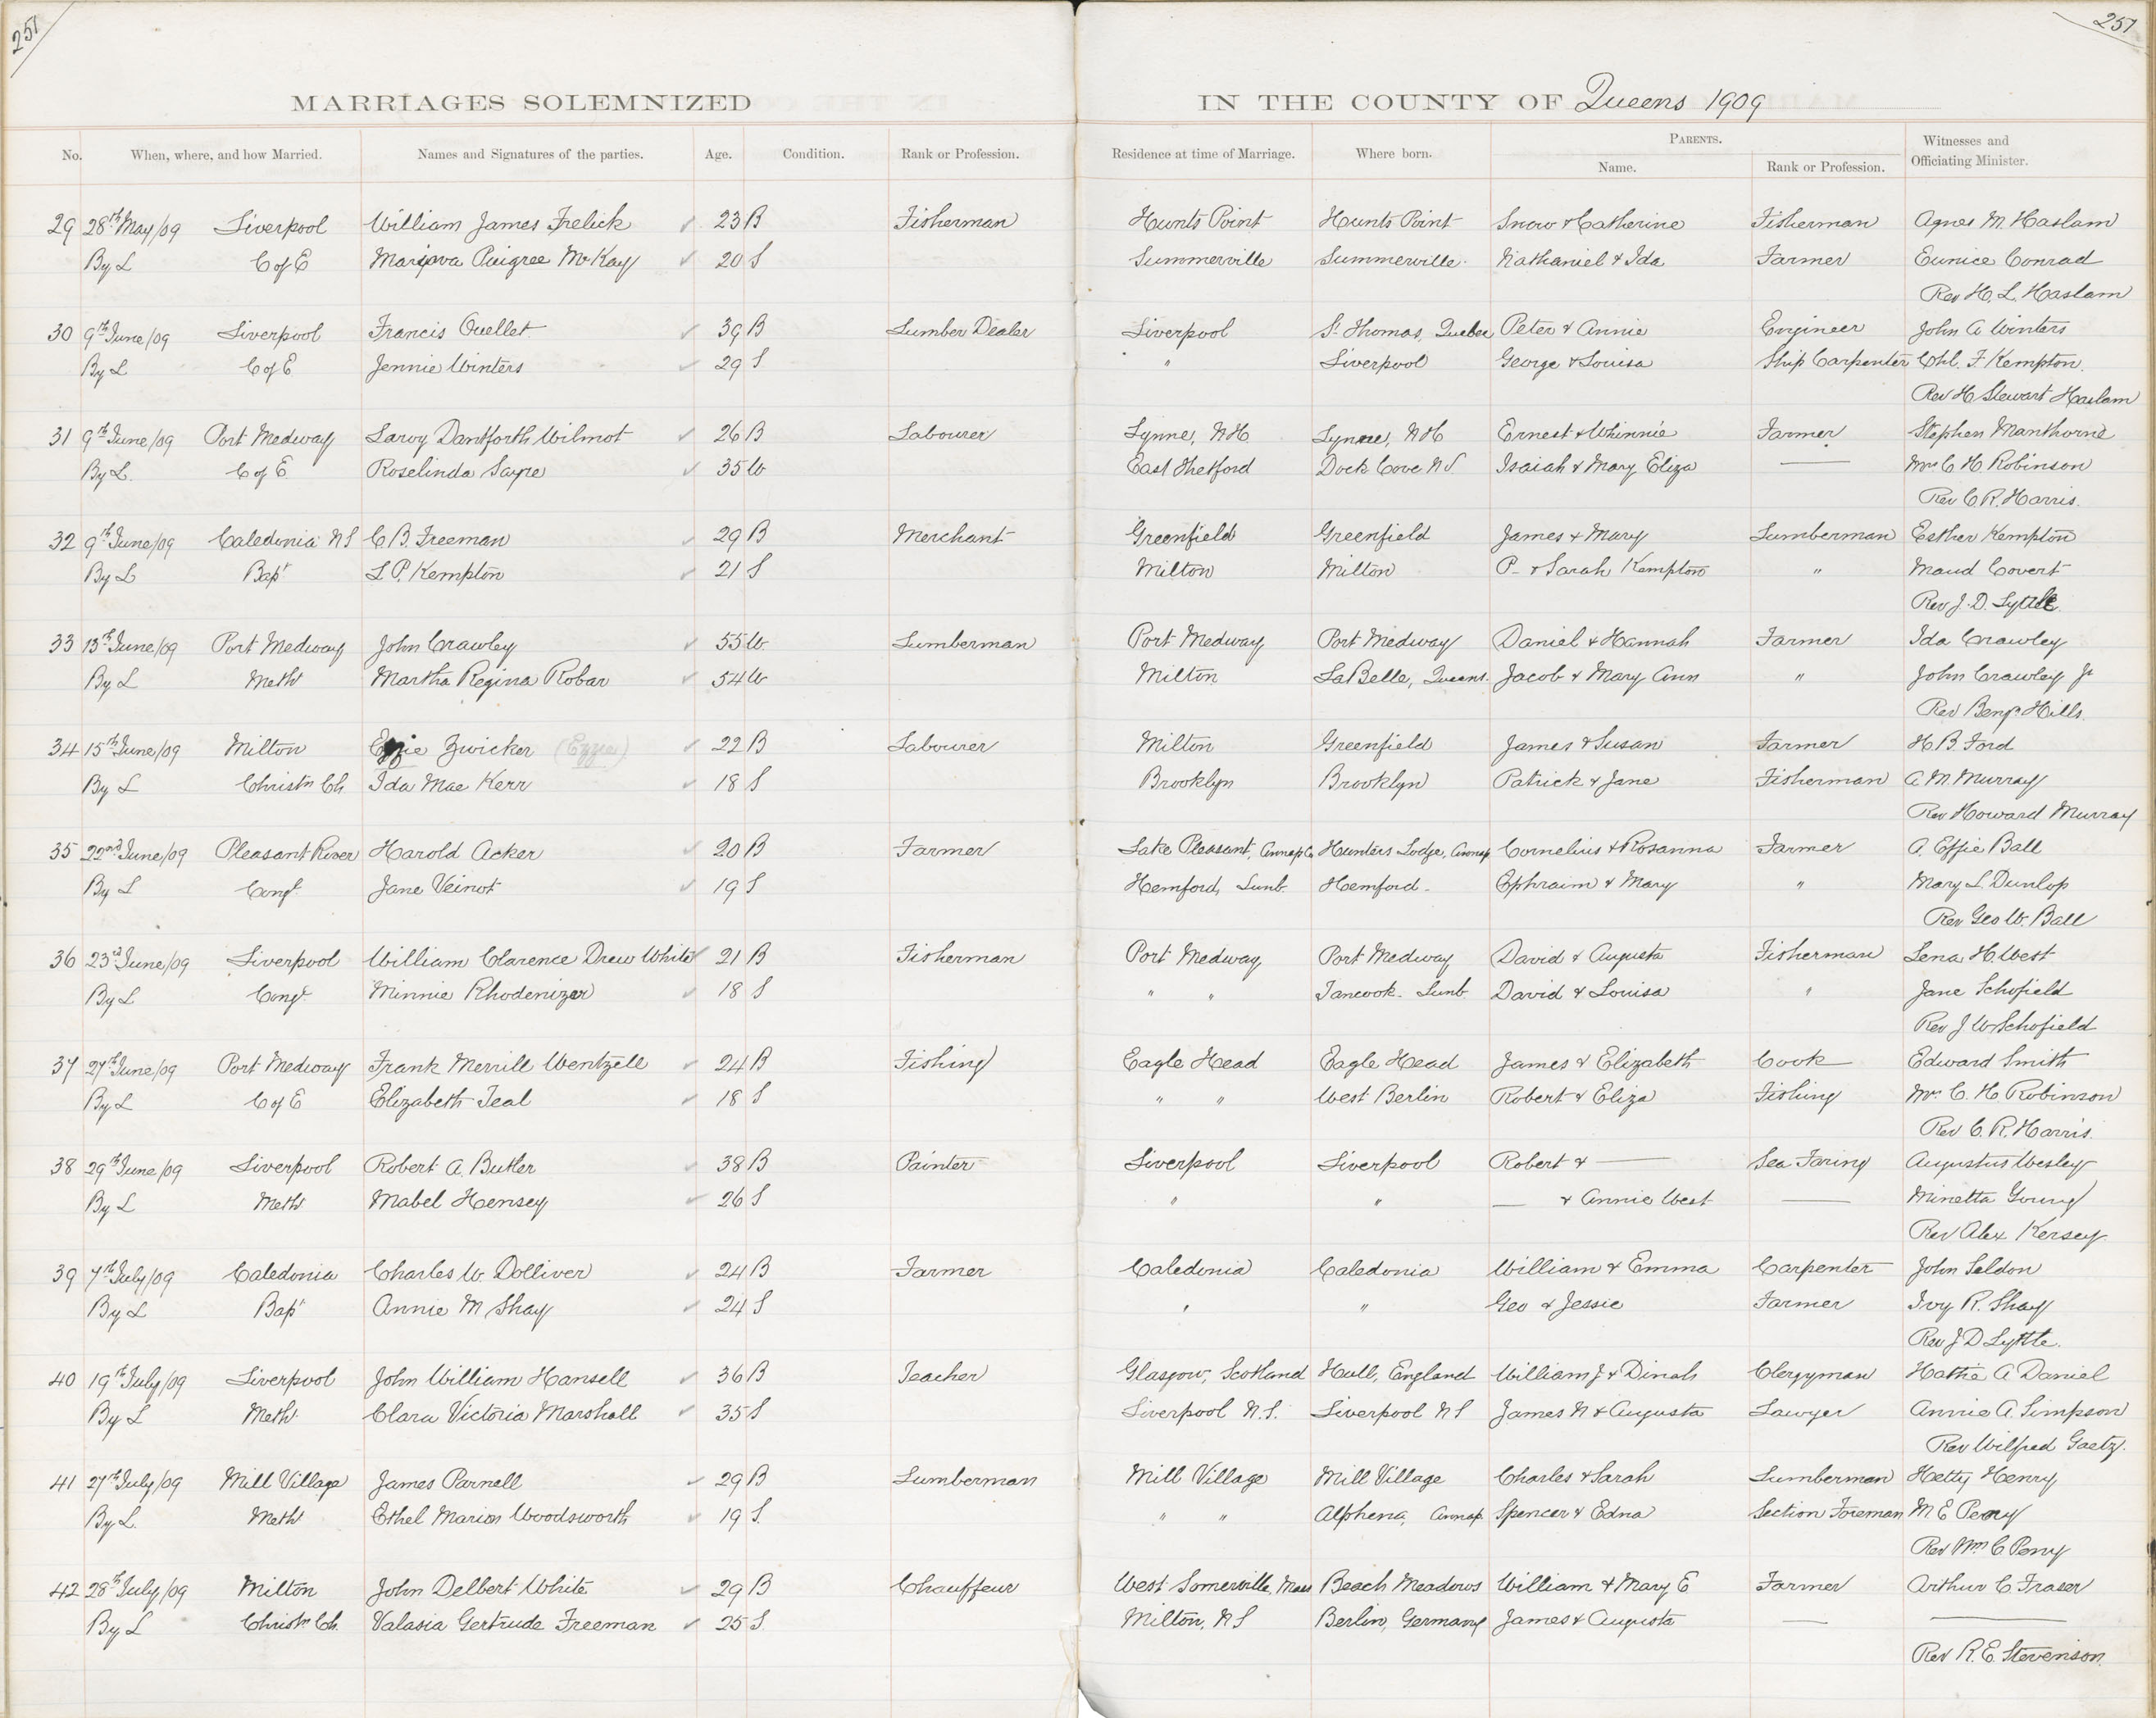 257
257
MARRIAGES SOLEMNIZED IN THE COUNTY OF Queens 1909
No. When, where, and how Married. Names and Signatures of the parties. Age. Condition. Rank or Profession. Residence at time of Marriage. Where born. PARENTS. Name. Rank or Profession. Witnesses and Officiating Minister.
29 28th May/09 Liverpool William James Frelick 23 B Fisherman Hunts Point Hunts Point Snow & Catherine Fisherman Agnes M. Haslam
By L C of E McKay 20 S Summerville Summerville Nathaniel & Ida Farmer Eunice Conrad
Rev H. L. Haslam
30 9th June/09 Liverpool Francis Ouellet 39 B Lumber Dealer Liverpool St Thomas, Quebec Peter & Annie Engineer John A Winters
By L C of E Jennie Winters 29 S " Liverpool George & Louisa Ship Carpenter Chl. F. Kempton
Rev H Stewart Haslam
31 9th June/09 Port Medway Larvy Dantforth Wilmot 26 B Labourer Lynne, NH Lynne, NH Ernest & Whinnie Farmer Stephen Manthorne
By L. C of E. Roselinda Sayre 35 W East Thetford Dock Cove N S. Isaiah & Mary Eliza — Mrs C H Robinson
Rev C. R. Harris.
32 9th June/09 Caledonia NS C. B. Freeman 29 B Merchant Greenfield Greenfield James & Mary Lumberman Esther Kempton
By L Bapt L. P. Kempton 21 S Milton Milton P- & Sarah Kempton " Maud Covert
Rev J. D. Lyttle.
33 13th June/09 Port Medway John Crawley 55 W. Lumberman Port Medway Port Medway Daniel & Hannah Farmer Ida Crawley
By L Meth Martha Regina Robar 54 W Milton LaBelle, Queens. Jacob & Mary Ann " John Crawley Jr
Rev Benj. Hills.
34 15th June/09 Milton Ezzie Zwicker (Ezzie) 22 B Labourer Milton Greenfield James & Susan Farmer H. B. Ford
By L Christn Ch Ida Mae Kerr 18 S Brooklyn Brooklyn Patrick & Jane Fisherman A. M. Murray
Rev Howard Murray
35 22nd June/09 Pleasant River Harold Acker 20 B Farmer Lake Pleasant, Annap Co Hunters Lodge, Annap. Cornelius & Rosanna Farmer A. Effie Ball
By L Congl. Jane Veinot 19 S Hemford, Lunb. Hemford. Ephraim & Mary " Mary L. Dunlop
Rev Geo W. Ball
36 23rd June/09 Liverpool William Clarence Drew White 21 B Fisherman Port Medway Port Medway David & Augusta Fisherman Lena H. West
By L Congl Minnie Rhodenizer 18 S " " Tancook. Lunb. David & Louisa " Jane Schofield
Rev J W Schofield
37 27th June/09 Port Medway Frank Merrill Wentzell 24 B Fishing Eagle Head Eagle Head James & Elizabeth Cook Edward Smith
By L C of E Elizabeth Teal 18 S " " West Berlin Robert & Eliza Fishing Mrs C. H Robinson
Rev C. R. Harris.
38 29th June/09 Liverpool Robert A. Butler 38 B Painter Liverpool Liverpool Robert & — Sea Faring Augustus Wesley
By L Meth Mabel Hensey 26 S " " — & Annie West — Minetta Young
Rev Alex Kersey.
39 7th July/09 Caledonia Charles W. Dolliver 24 B Farmer Caledonia Caledonia William & Emma Carpenter John Seldon
By L Bapt Annie M Shay 24 S " " Geo & Jessie Farmer Ivy R. Shay
Rev J D Lyttle.
40 19th July/09 Liverpool John William Hansell 36 B Teacher Glasgow, Scotland Hull, England William J & Dinah Clergyman Hattie A Daniel
By L Meth. Clara Victoria Marshall 35 S Liverpool N.S. Liverpool NS James N & Augusta Lawyer Annie A. Simpson
Rev Wilfred Gaetz.
41 27th July/09 Mill Village James Parnell 29 B Lumberman Mill Village Mill Village Charles & Sarah Lumberman Hetty Henry
By L. Meth Ethel Marion Woodsworth 19 S. " " Alphena, Annap. Spencer & Edna Section Foreman M E Perry
Rev Wm C Perry
42 28th July/09 Milton John Delbert White 29 B Chauffeur West Somerville, Mass Beach Meadows William & Mary E Farmer Arthur C Fraser
By L Christn Ch. Valasia Gertrude Freeman 25 S. Milton, NS Berlin, Germany James & Augusta — —
Rev R. E. Stevenson.